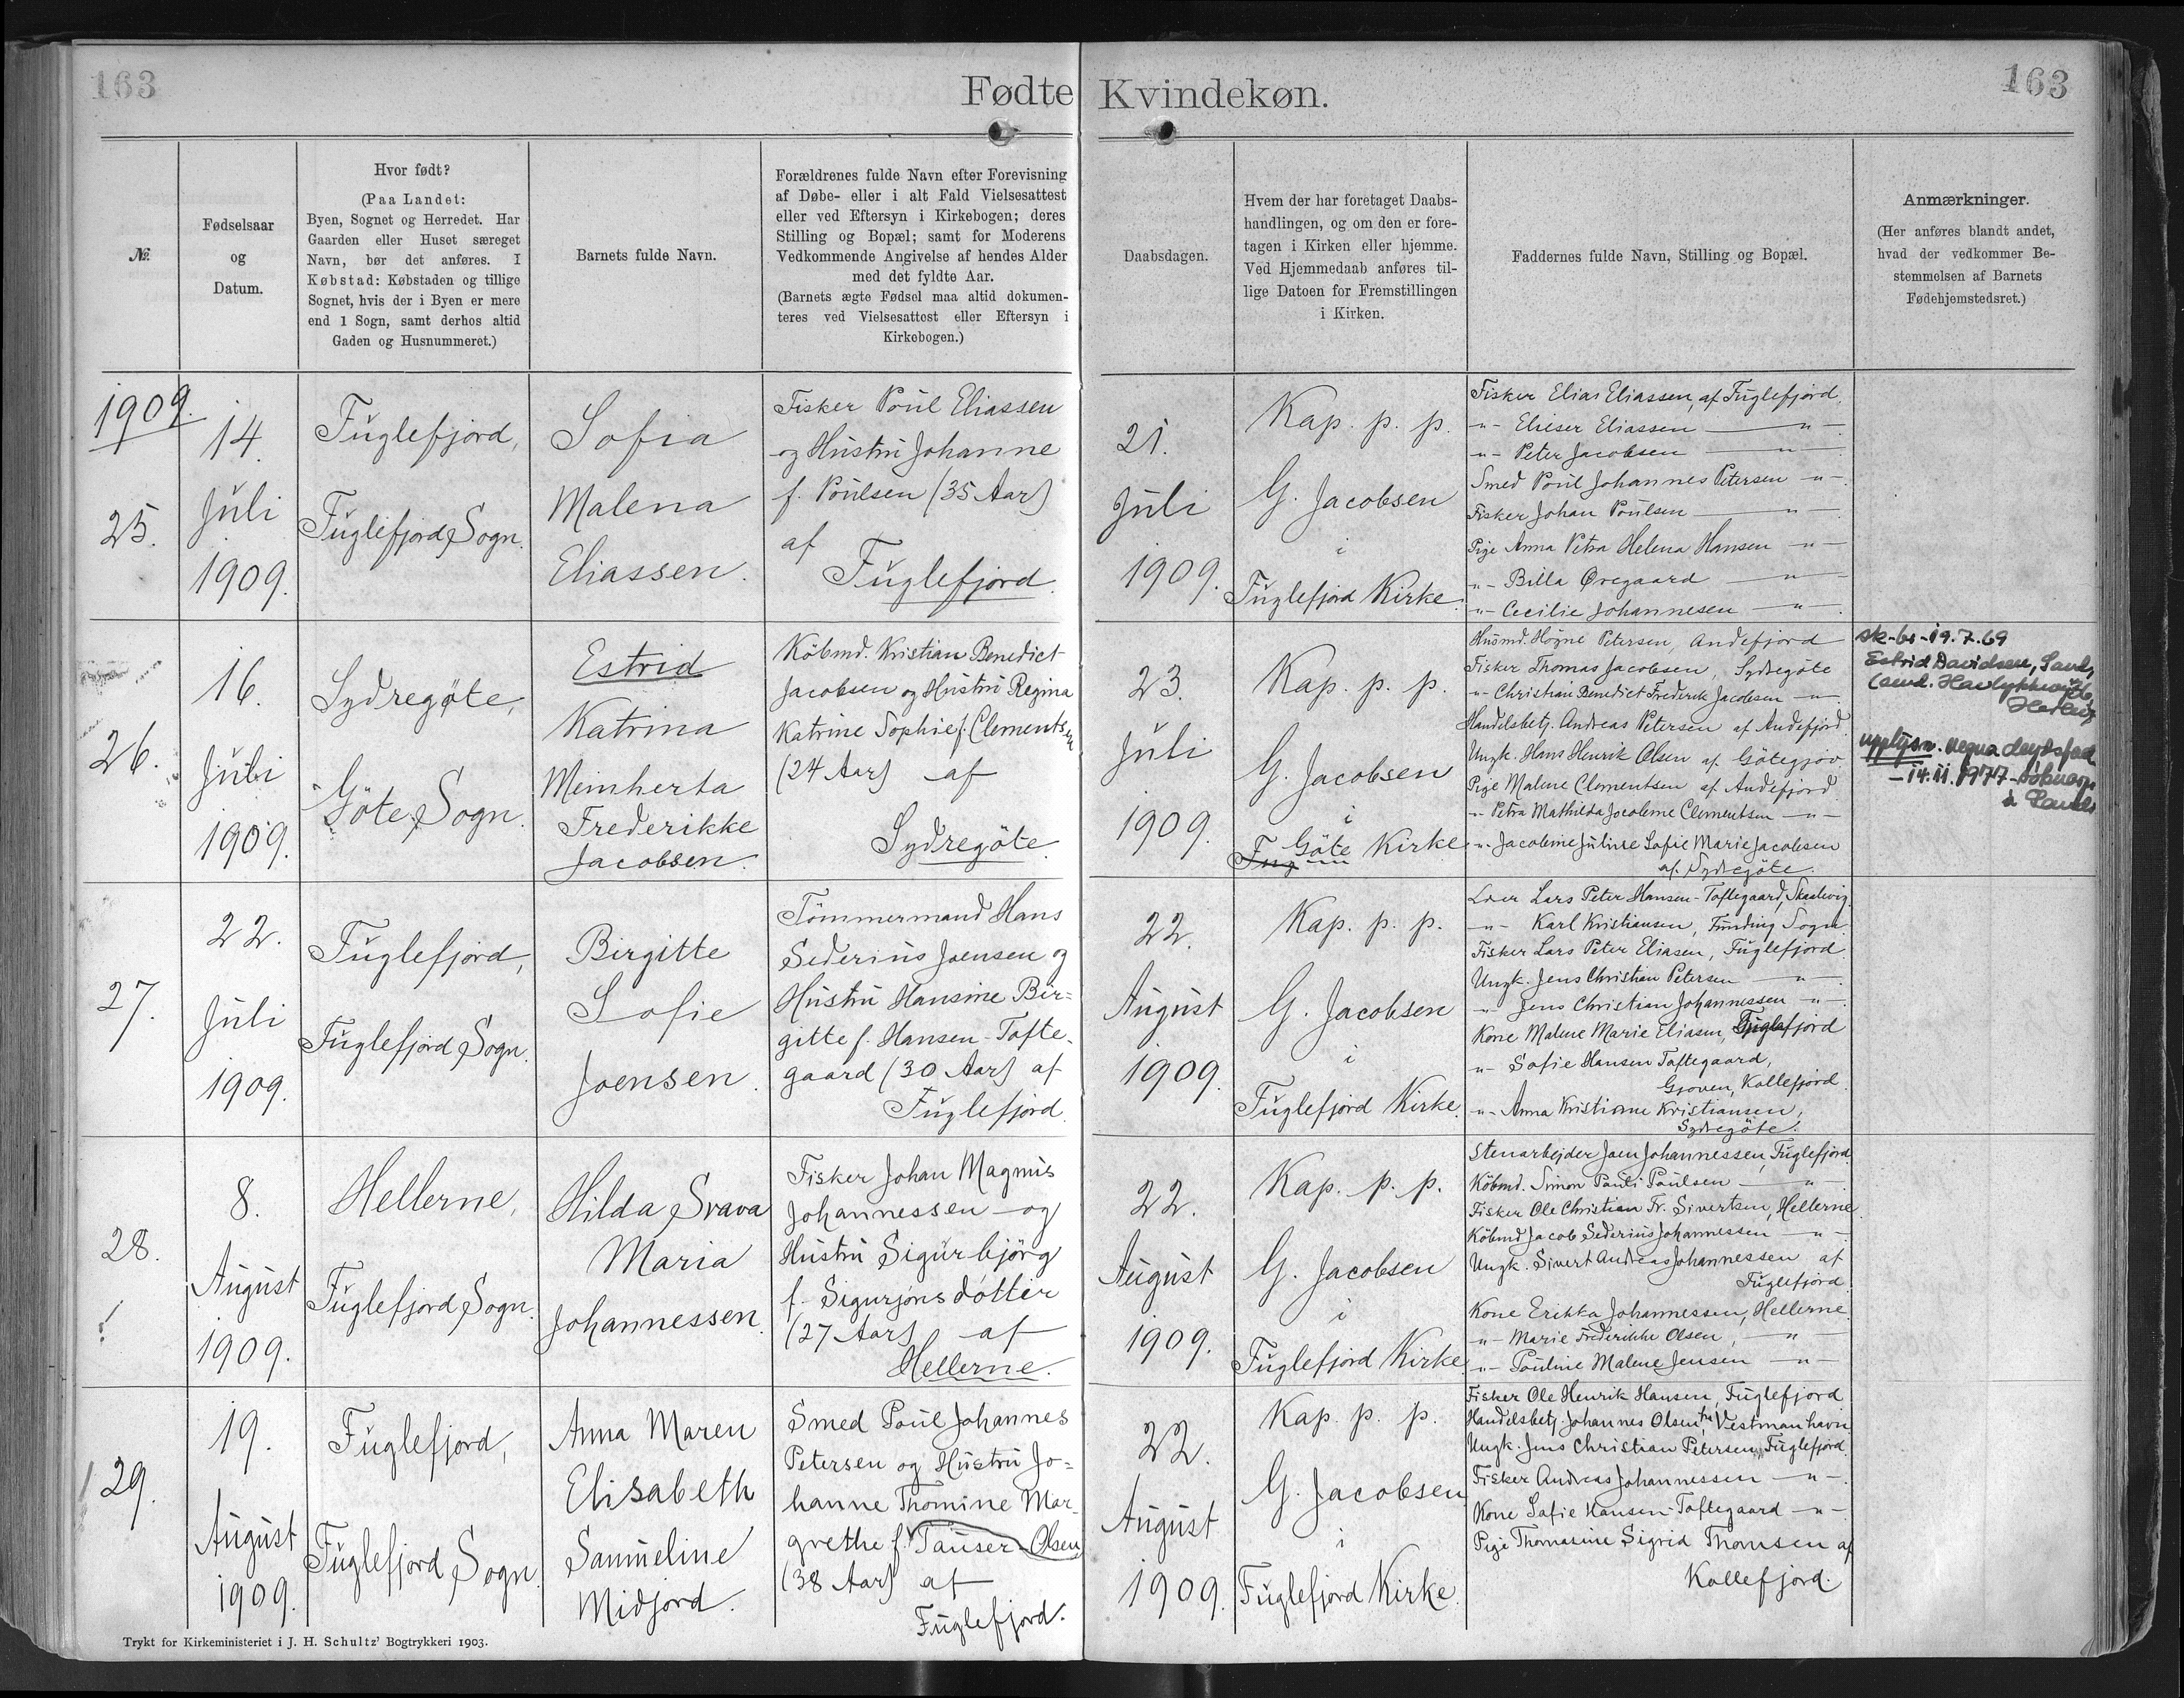 163
Fødte Kvindekøn.
163
№
Fødselsaar
og
Datum.
Hvor født?
(Paa Landet:
Byen, Sognet og Herredet. Har
Gaarden eller Huset særeget
Navn, bør det anføres. I
Købstad: Købstaden og tillige
Sognet, hvis der i Byen er mere
end 1 Sogn, samt derhos altid
Gaden og Husnummeret.)
Barnets fulde Navn.
Forældrenes fulde Navn efter Forevisning
af Døbe- eller i alt Fald Vielsesattest
eller ved Eftersyn i Kirkebogen; deres
Stilling og Bopæl; samt for Moderens
Vedkommende Angivelse af hendes Alder
med det fyldte Aar.
(Barnets ægte Fødsel maa altid dokumen-
teres ved Vielsesattest eller Eftersyn i
Kirkebogen.)
Daabsdagen.
Hvem der har foretaget Daabs-
handlingen, og om den er fore-
tagen i Kirken eller hjemme.
Ved Hjemmedaab anføres til-
lige Datoen for Fremstillingen
i Kirken.
Faddernes fulde Navn, Stilling og Bopæl.
Anmærkninger.
(Her anføres blandt andet,
hvad der vedkommer Be-
stemmelsen af Barnets
Fødehjemstedsret.)
1909.
25.
14.
Juli
1909.
Fuglefjord,
Fuglefjord Sogn.
Sofia
Malena
Eliassen.
Fisker Poul Eliassen
og Hustru Johanne
f. Poulsen (35 Aar)
af
Fuglefjord.
21.
Juli
1909.
Kap. p. p.
G. Jacobsen
i
Fuglefjord Kirke.
Fisker Elias Eliassen, af Fuglefjord.
-"- Elieser Eliassen -"-
-"- Peter Jacobsen -"-
Smed Poul Johannes Petersen -"-
Fisker Johan Poulsen -"-
Pige Anna Petra Helena Hansen -"-
-"- Billa Øregaard -"-
-"- Cecilie Johannesen -"-
26.
16.
Juli
1909.
Sydregöte,
Göte Sogn.
Estrid
Katrina
Meinherta
Frederikke
Jacobsen.
Köbmd. Kristian Benedict
Jacobsen og Hustru Regina
Katrine Sophie f. Clementsen
(24 Aar) af
Sydregöte.
23.
Juli
1909.
Kap. p. p.
G. Jacobsen
i
Fug Göte Kirke
Husmd. Högne Petersen, Andefjord
Fisker Thomas Jacobsen, Sydregöte
-"- Christian Benedict Frederik Jacobsen -"-
Handelsbetj. Andreas Petersen af Andefjord
Ungk. Hans Henrik Olsen af Götegjov
Pige Malene Clementsen af Andefjord
-"- Petra Mathilda Jacobine Clementsen -"-
-"- Jacobine Juline Sofie Marie Jacobsen
af Sydregöte.
sk-br-19.7.69
Estrid Davidsen,
-14.11.1977-
27.
22.
Juli
1909.
Fuglefjord,
Fuglefjord Sogn.
Birgitte
Sofie
Joensen.
Tömmermand Hans
Sederius Joensen og
Hustru Hansine Bir=
gitte f. Hansen-Tofte-
gaard (30 Aar) af
Fuglefjord.
22.
August
1909.
Kap. p. p.
G. Jacobsen
i
Fuglefjord Kirke.
Lars Peter Hansen-Toftegaard, Skaalevig.
-"- Karl Kristiansen, Funding Sogn.
Fisker Lars Peter Eliasen, Fuglefjord.
Ungk. Jens Christian Petersen -"-
-"- Jens Christian Johannessen -"-
Kone Malene Marie Eliasen, Fuglefjord
-"- Sofie Hansen Toftegaard,
Gjoven, Kollefjord.
-"- Anna Kristiane Kristiansen,
Sydregöte.
28.
8.
August
1909.
Hellerne,
Fuglefjord Sogn.
Hilda Svava
Maria
Johannessen.
Fisker Johan Magnus
Johannessen og
Hustru Sigurbjörg
f. Sigurjónsdóttir
(27 Aar) af
Hellerne.
22.
August
1909.
Kap. p. p.
G. Jacobsen
i
Fuglefjord Kirke
Stenarbejder Joen Johannessen, Fuglefjord.
Köbmd. Simon Pauli Poulsen -"-
Fisker Ole Christian Fr. Sivertsen, Hellerne.
Köbmd Jacob Sederius Johannessen -"-
Ungk. Sivert Andreas Johannessen af
Fuglefjord.
Kone Erikka Johannessen, Hellerne.
-"- Marie Frederikke Olsen, -"-
-"- Pouline Malene Jensen -"-
29.
19.
August
1909.
Fuglefjord,
Fuglefjord Sogn.
Anna Maren
Elisabeth
Sanneline
Midjord.
Smed Poul Johannes
Petersen og Hustru Jo=
hanne Thomine Mar-
grethe f. Tauser-Olsen
(38 Aar) af
Fuglefjord.
22.
August
1909.
Kap. p. p.
G. Jacobsen
i
Fuglefjord Kirke.
Fisker Ole Henrik Hansen, Fuglefjord
Handelsbetj. Johannes Olsen, Vestmanhavn
Ungk. Jens Christian Petersen, Fuglefjord.
Fisker Andreas Johannessen -"-
Kone Sofie Hansen-Toftegaard -"-
Pige Thomasine Sigrid Thomsen af
Kollefjord.
Trykt for Kirkeministeriet i J. H. Schultz' Bogtrykkeri 1903.